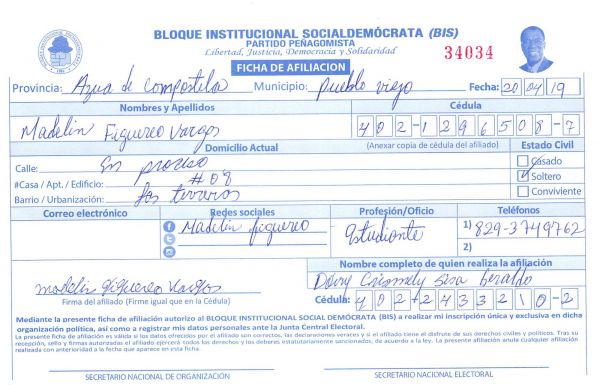 BLOQUE INSTITUCIONAL SOCIALDEMÓCRATA (BIS)
PARTIDO PEÑAGOMISTA
Libertad, Justicia, Democracia y Solidaridad
34034
FICHA DE AFILIACION
Provincia: Azua de compostela Municipio: Pueblo viejo Fecha: 20 04 19
Nombres y Apellidos Cédula
Madelin Figuereo Vargas 402-1296508-7
Domicilio Actual (Anexar copia de cédula del afiliado) Estado Civil
Calle: En proceso Casado
#Casa / Apt. / Edificio: #08 Soltero
Barrio / Urbanización: los Conviviente
Correo electrónico Redes sociales Profesión/Oficio Teléfonos
Madelin figuereo Estudiante 1) 829-3749762
2)
Nombre completo de quien realiza la afiliación
madelin Figuereo Vargas
Firma del afiliado (Firme igual que en la Cédula) Cédula: 402-2433210-2
Mediante la presente ficha de afiliación autorizo al BLOQUE INSTITUCIONAL SOCIAL DEMÓCRATA (BIS) a realizar mi inscripción única y exclusiva en dicha
organización política, así como a registrar mis datos personales ante la Junta Central Electoral.
La presente ficha de afiliación es válida si los datos ofrecidos por el afiliado son correctos, las declaraciones veraces y si el afiliado tiene el disfrute de sus derechos civiles y políticos. Tras su
recepción, sello y firmas autorizadas el afiliado ejercerá todos los derechos y los deberes estatutariamente sancionados, de acuerdo a la ley. La presente afiliación anula cualquier afiliación
realizada con anterioridad a la fecha que aparece en esta ficha.
SECRETARIO NACIONAL DE ORGANIZACIÓN SECRETARIO NACIONAL ELECTORAL